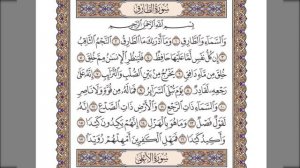 سُورَةُ الطَّارِقِ
بِسْمِ ٱللَّهِ ٱلرَّحْمَٰنِ ٱلرَّحِيمِ
وَٱلسَّمَآءِ وَٱلطَّارِقِ ١ وَمَآ أَدْرَىٰكَ مَا ٱلطَّارِقُ ٢ ٱلنَّجْمُ ٱلثَّاقِبُ ٣
إِن كُلُّ نَفْسٍ لَّمَّا عَلَيْهَا حَافِظٌ ٤ فَلْيَنظُرِ ٱلْإِنسَٰنُ مِمَّ خُلِقَ ٥
خُلِقَ مِن مَّآءٍ دَافِقٍ ٦ يَخْرُجُ مِنۢ بَيْنِ ٱلصُّلْبِ وَٱلتَّرَآئِبِ ٧ إِنَّهُۥ عَلَىٰ
رَجْعِهِۦ لَقَادِرٌ ٨ يَوْمَ تُبْلَى ٱلسَّرَآئِرُ ٩ فَمَا لَهُۥ مِن قُوَّةٍ وَلَا نَاصِرٍ ١٠
وَٱلسَّمَآءِ ذَاتِ ٱلرَّجْعِ ١١ وَٱلْأَرْضِ ذَاتِ ٱلصَّدْعِ ١٢ إِنَّهُۥ
لَقَوْلٌ فَصْلٌ ١٣ وَمَا هُوَ بِٱلْهَزْلِ ١٤ إِنَّهُمْ يَكِيدُونَ كَيْدًا ١٥
وَأَكِيدُ كَيْدًا ١٦ فَمَهِّلِ ٱلْكَٰفِرِينَ أَمْهِلْهُمْ رُوَيْدًۢا ١٧
سُورَةُ الأَعْلَى